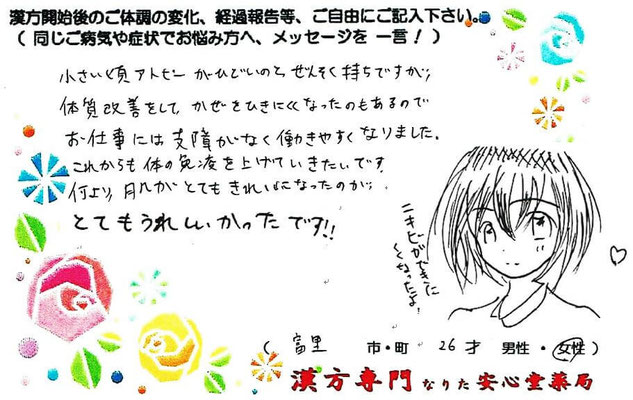 漢方開始後のご体調の変化、経過報告等、ご自由にご記入下さい。
（ 同じご病気や症状でお悩み方へ、メッセージを 一言！ ）
小さい頃アトピーがひどいのと ぜんそく持ちですが、
体質改善をして、かぜをひきにくくなったのもあるので
お仕事には支障がなく働きやすくなりました。
これからも体の免疫を上げていきたいです。
何より、肌がとてもきれいになったのが、
とてもうれしいかったです!!
ニキビができに
くくなったよ！
（ 富里 市・町 26 才 男性・女性 ）
漢方専門 なりた 安心堂薬局